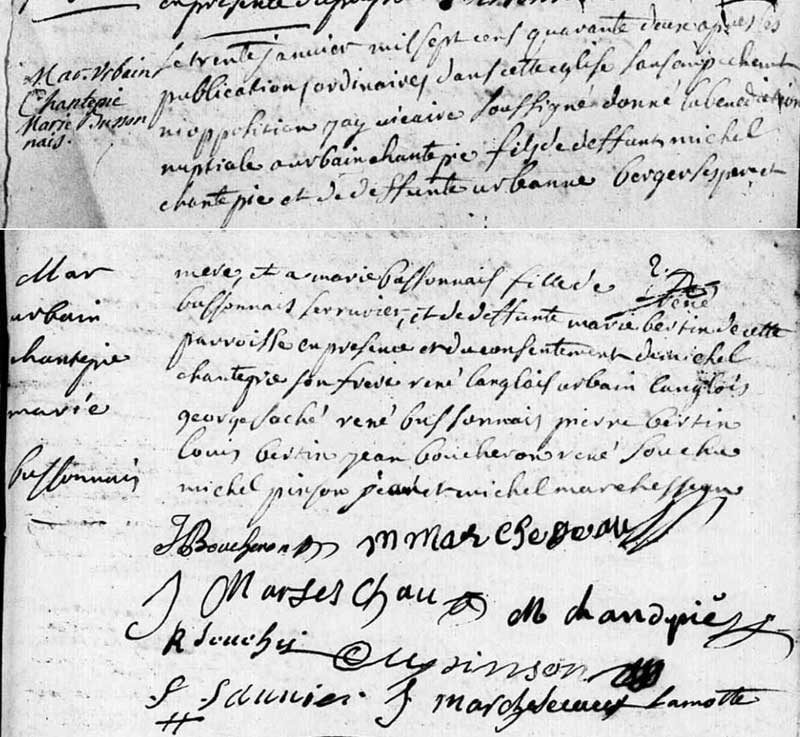 en presence du
Mar. Urbain
Chantepie
Marie Busson
nais.
Le trente janvier mil sept cens quarante deux apres les
publications ordinaires dans cette eglise sans empechement
ni opposition jay vicaire soussigné donné la benediction
nuptiale a urbain chantepie fils de deffunt michel
chantepie et de deffunte urbanne berger ses pere et
Mar
urbain
chantepie
marie
bussonnais
mere, et a marie bussonnais fille de rené
bussonnais serrurier, et de deffunte marie bertin de cette
parroisse en presence et du consentement de michel
chantepie son frere rené langlois urbain langlois
george saché rené bussonnais pierre bertin
louis bertin jean boucheron rené souchu
michel pinson jean et michel marchesseau
J Boucheron m marchedeau
J Marseschau M chandpié
R Souchu pinson
S Saunier J marcheseau Lamotte